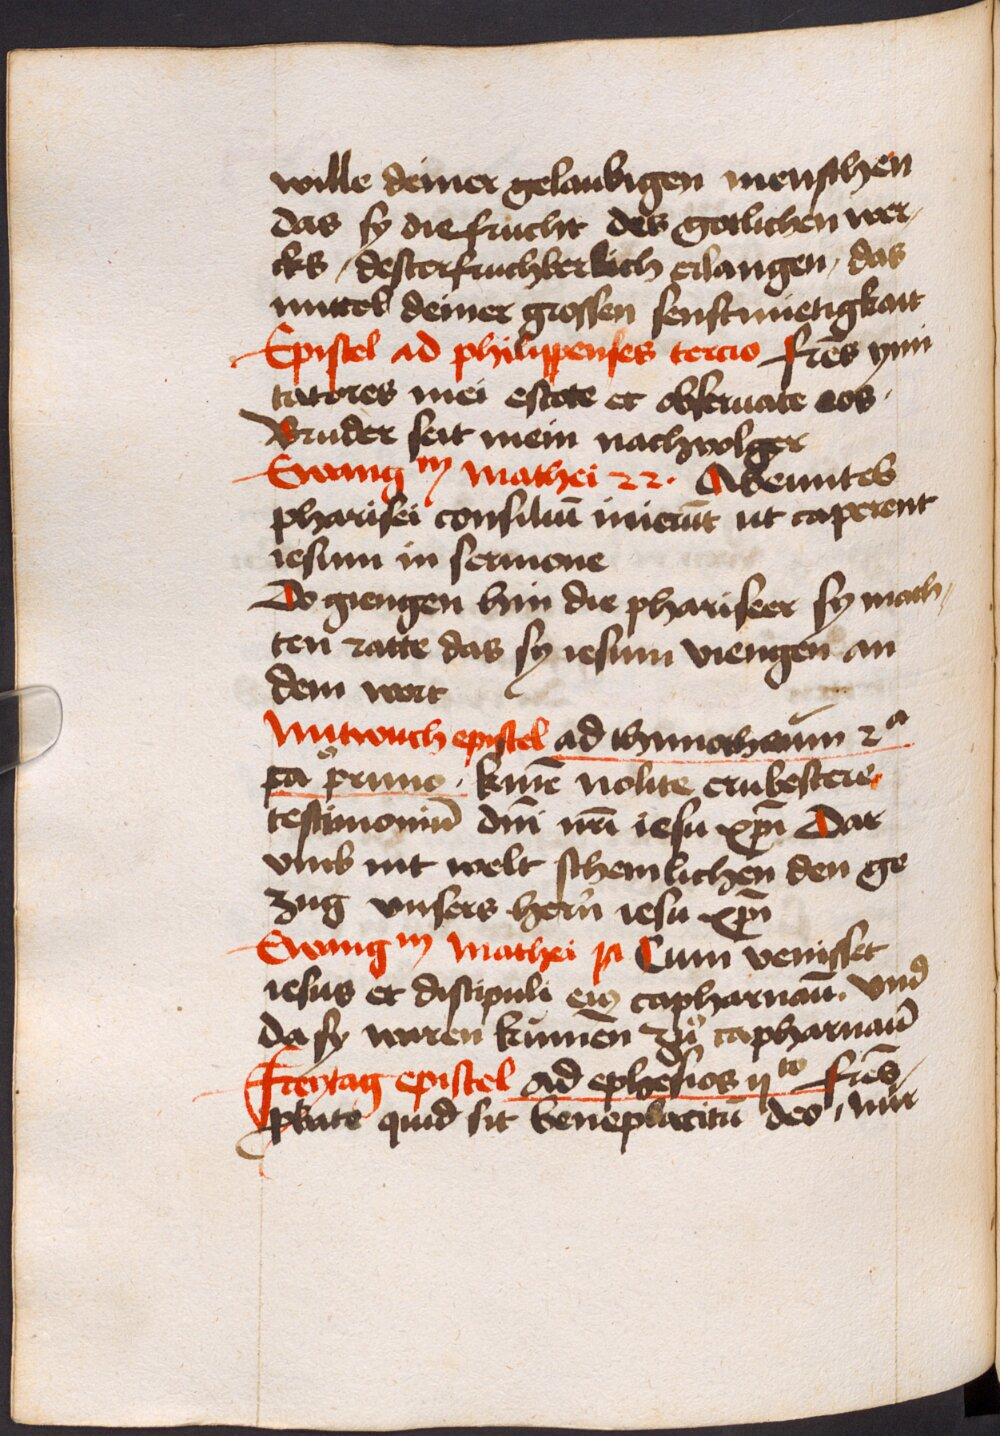 wille deiner gelaubigen menschen
das sy die frucht des gotlichen wer-
cks / dester fruchberkich erlangen / das
mittel deiner grossen senftmietigkait
Epistel ad philippenses tercio frēs ymi
tatores mei estote et obseruate eos ·
Bruder seit mein nachvolger
Ewangm Mathei 22 · Abeuntes
pharisei consiliū inierūt ut caperent
iesum in sermone
Do giengen hin die phariseer sy mach-
ten ratte das sy iesum viengen an
dem wort
Mitwuch epistel ad thimotheum 2a
ca⁰ primo · kmē nolite erubescere
testimoniū dn̄i nr̄i iesu xp̄i Dar
vmb nit welt schemlichen den ge
zug vnsers hern̄ iesu xp̄i
Ewangm Mathei Cum venisset
iesus et discipuli eiꝰ capharnaū · Vnd
da sy waren kumen zů capharnaū
Freytag epistel ad ephesios iito frēs /
pbate quid sit beneplacitū deo / mir